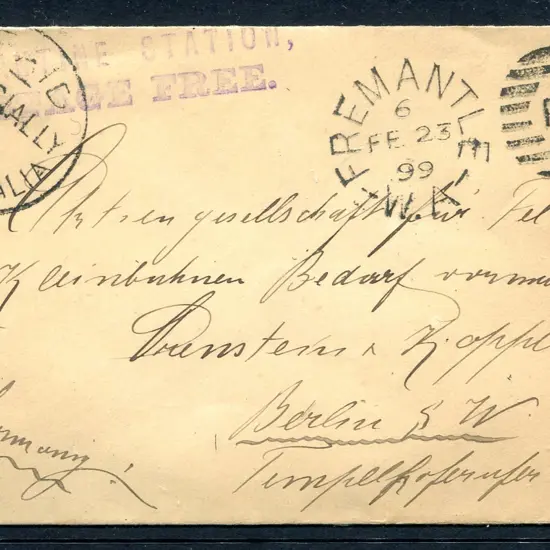 TIME STATION,
AGE FREE.
CIALLY
ALIA
FREMANTLE
6
FE 23
99
W.A
Actien gesellschaft für Fel
Kleinbahnen Bedarf vorma
Orenstein & Koppel
Berlin S W.
Tempelhoferufer
ermany!